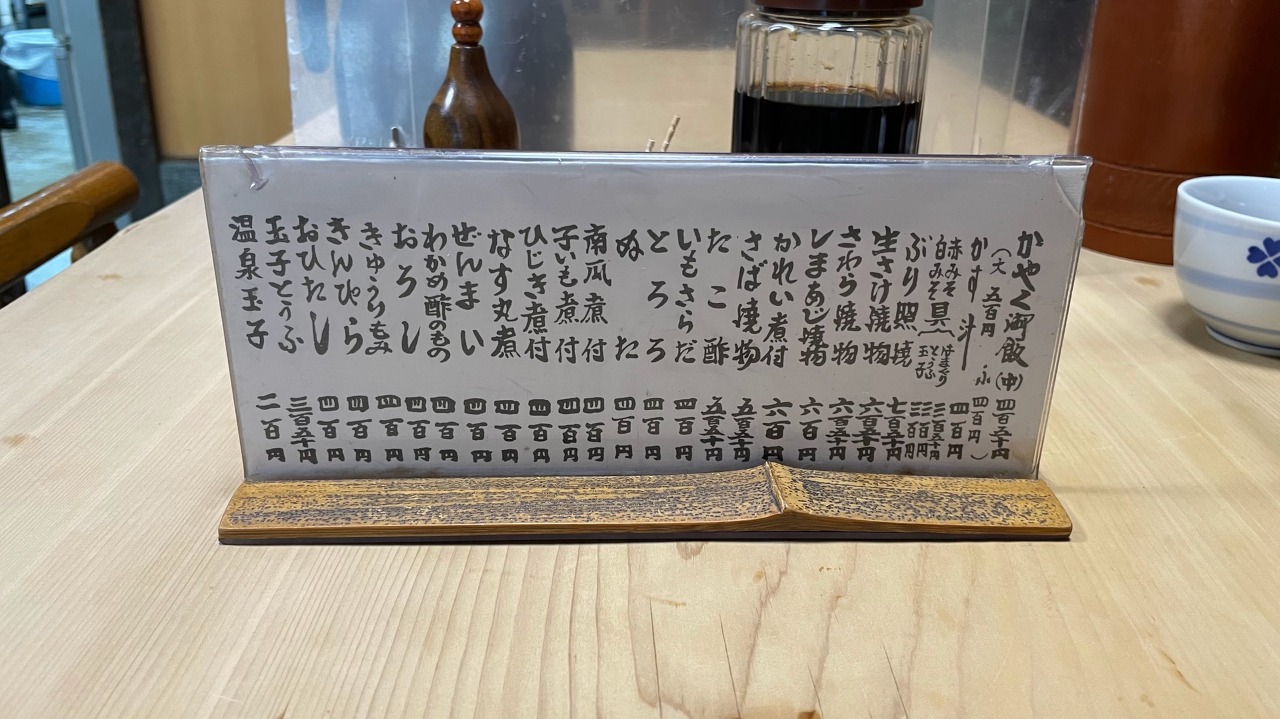 かやく御飯(中) 四百五十円
(大 五百円 ・小 四百円)
かす汁 四百円
赤みそ
白みそ
具
はまぐり 三百五十円
とうふ 三百円
玉子 三百円
ぶり照焼 七百五十円
生さけ焼物 六百五十円
さわら焼物 六百五十円
しまあじ焼物 六百円
かれい煮付 六百円
さば焼物 五百五十円
たこ酢 五百五十円
いもさらだ 四百円
とろろ 四百円
ぬた 四百円
南瓜煮付 四百円
子いも煮付 四百円
ひじき煮付 四百円
なす丸煮 四百円
ぜんまい 四百円
わかめ酢のもの 四百円
おろし 四百円
きゅうりもみ 四百円
きんぴら 四百円
おひたし 四百円
玉子とうふ 三百五十円
温泉玉子 二百円